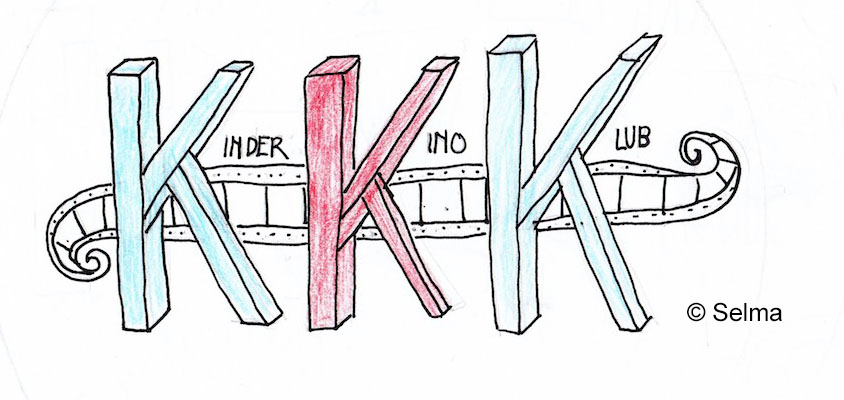 KINDER KINO KLUB
© Selma